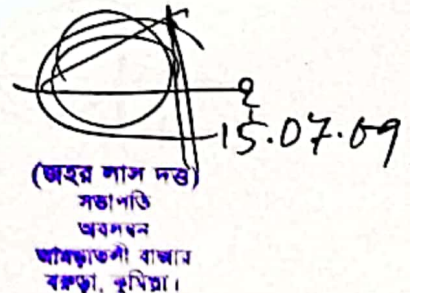 15.07.09
(জহর লাল দত্ত)
সভাপতি
অবলম্বন
আমড়াতলী বাজার
বরুড়া, কুমিল্লা।